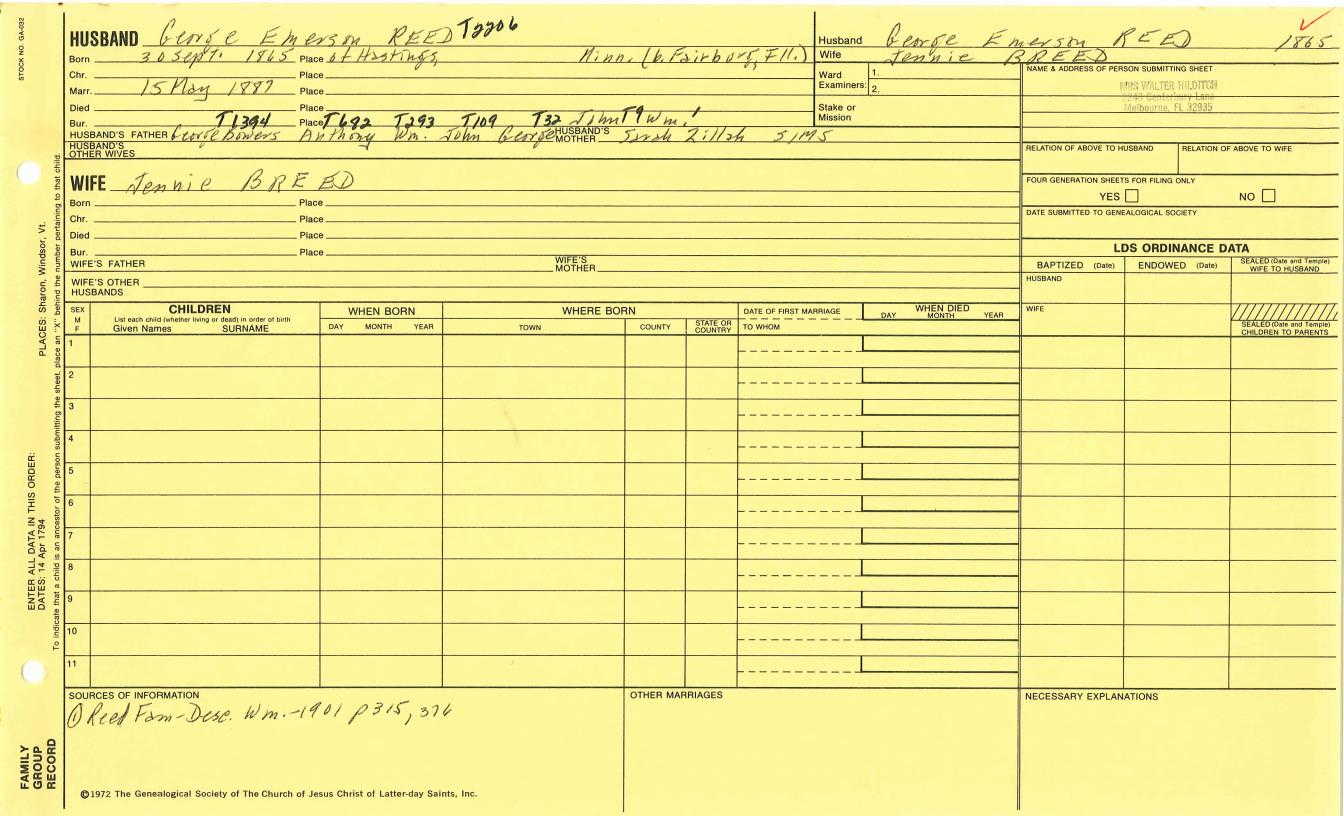 STOCK NO. GA-032
HUSBAND George Emerson REED T2206
Born 30 Sept. 1865 Place of Hastings, Minn. (b. Fairburg, Ill.)
Chr. Place
Marr. 15 May 1887 Place
Died Place
Bur. T1394 Place T692 T293 T109 T32 John T9 Wm.1
HUSBAND'S FATHER George Bowers Anthony Wm. John George HUSBAND'S MOTHER Sarah Zillah SIMS
HUSBAND'S OTHER WIVES
Husband George Emerson REED 1865
Wife Jennie BREED
Ward Examiners: 1.
2.
Stake or Mission
NAME & ADDRESS OF PERSON SUBMITTING SHEET
MRS WALTER HILDITCH
2243 Canterbury Lane
Melbourne, FL 32935
RELATION OF ABOVE TO HUSBAND RELATION OF ABOVE TO WIFE
FOUR GENERATION SHEETS FOR FILING ONLY
YES NO
DATE SUBMITTED TO GENEALOGICAL SOCIETY
WIFE Jennie BREED
Born Place
Chr. Place
Died Place
Bur. Place
WIFE'S FATHER WIFE'S MOTHER
WIFE'S OTHER HUSBANDS
LDS ORDINANCE DATA
BAPTIZED (Date) ENDOWED (Date) SEALED (Date and Temple) WIFE TO HUSBAND
HUSBAND
WIFE
SEALED (Date and Temple) CHILDREN TO PARENTS
SEX M F
CHILDREN
List each child (whether living or dead) in order of birth
Given Names SURNAME
WHEN BORN
DAY MONTH YEAR
WHERE BORN
TOWN COUNTY STATE OR COUNTRY
DATE OF FIRST MARRIAGE
TO WHOM
WHEN DIED
DAY MONTH YEAR
1
2
3
4
5
6
7
8
9
10
11
SOURCES OF INFORMATION
① Reed Fam-Desc. Wm.-1901 p315, 376
OTHER MARRIAGES
NECESSARY EXPLANATIONS
©1972 The Genealogical Society of The Church of Jesus Christ of Latter-day Saints, Inc.
FAMILY GROUP RECORD
ENTER ALL DATA IN THIS ORDER:
DATES: 14 Apr 1794 PLACES: Sharon, Windsor, Vt.
To indicate that a child is an ancestor of the person submitting the sheet, place an "X" behind the number pertaining to that child.